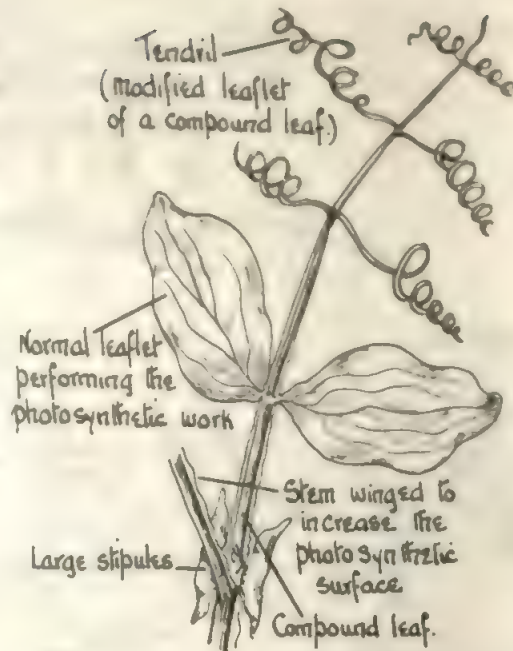 Tendril
(modified leaflet
of a compound leaf.)
Normal leaflet
performing the
photosynthetic work
Stem winged to
increase the
photosynthetic
surface
Large stipules
Compound leaf.